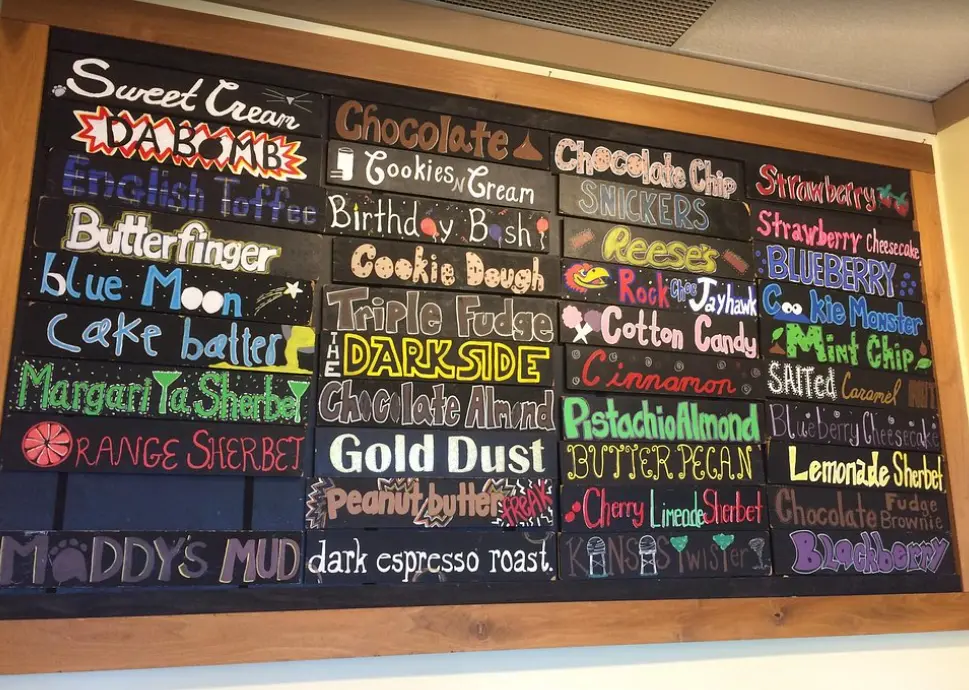 Sweet Cream
DA BOMB
English Toffee
Butterfinger
blue Moon
Cake batter
MargariTa Sherbet
ORANGE SHERBET
MaDDY'S MUD
Chocolate
Cookies N Cream
Birthday Bash!
Cookie Dough
Triple Fudge
THE DARK SIDE
Chocolate Almond
Gold Dust
Peanut butter FREAK
dark espresso roast.
Chocolate Chip
SNICKERS
Reese's
Rock Choc Jayhawk
Cotton Candy
Cinnamon
Pistachio Almond
BUTTER PECAN
Cherry Limeade Sherbet
KANSAS TWISTER
Strawberry
Strawberry Cheesecake
BLUEBERRY
Cookie Monster
Mint Chip
SAlTed Caramel NUT
Blueberry Cheesecake
Lemonade Sherbet
Chocolate Fudge Brownie
BLackberry